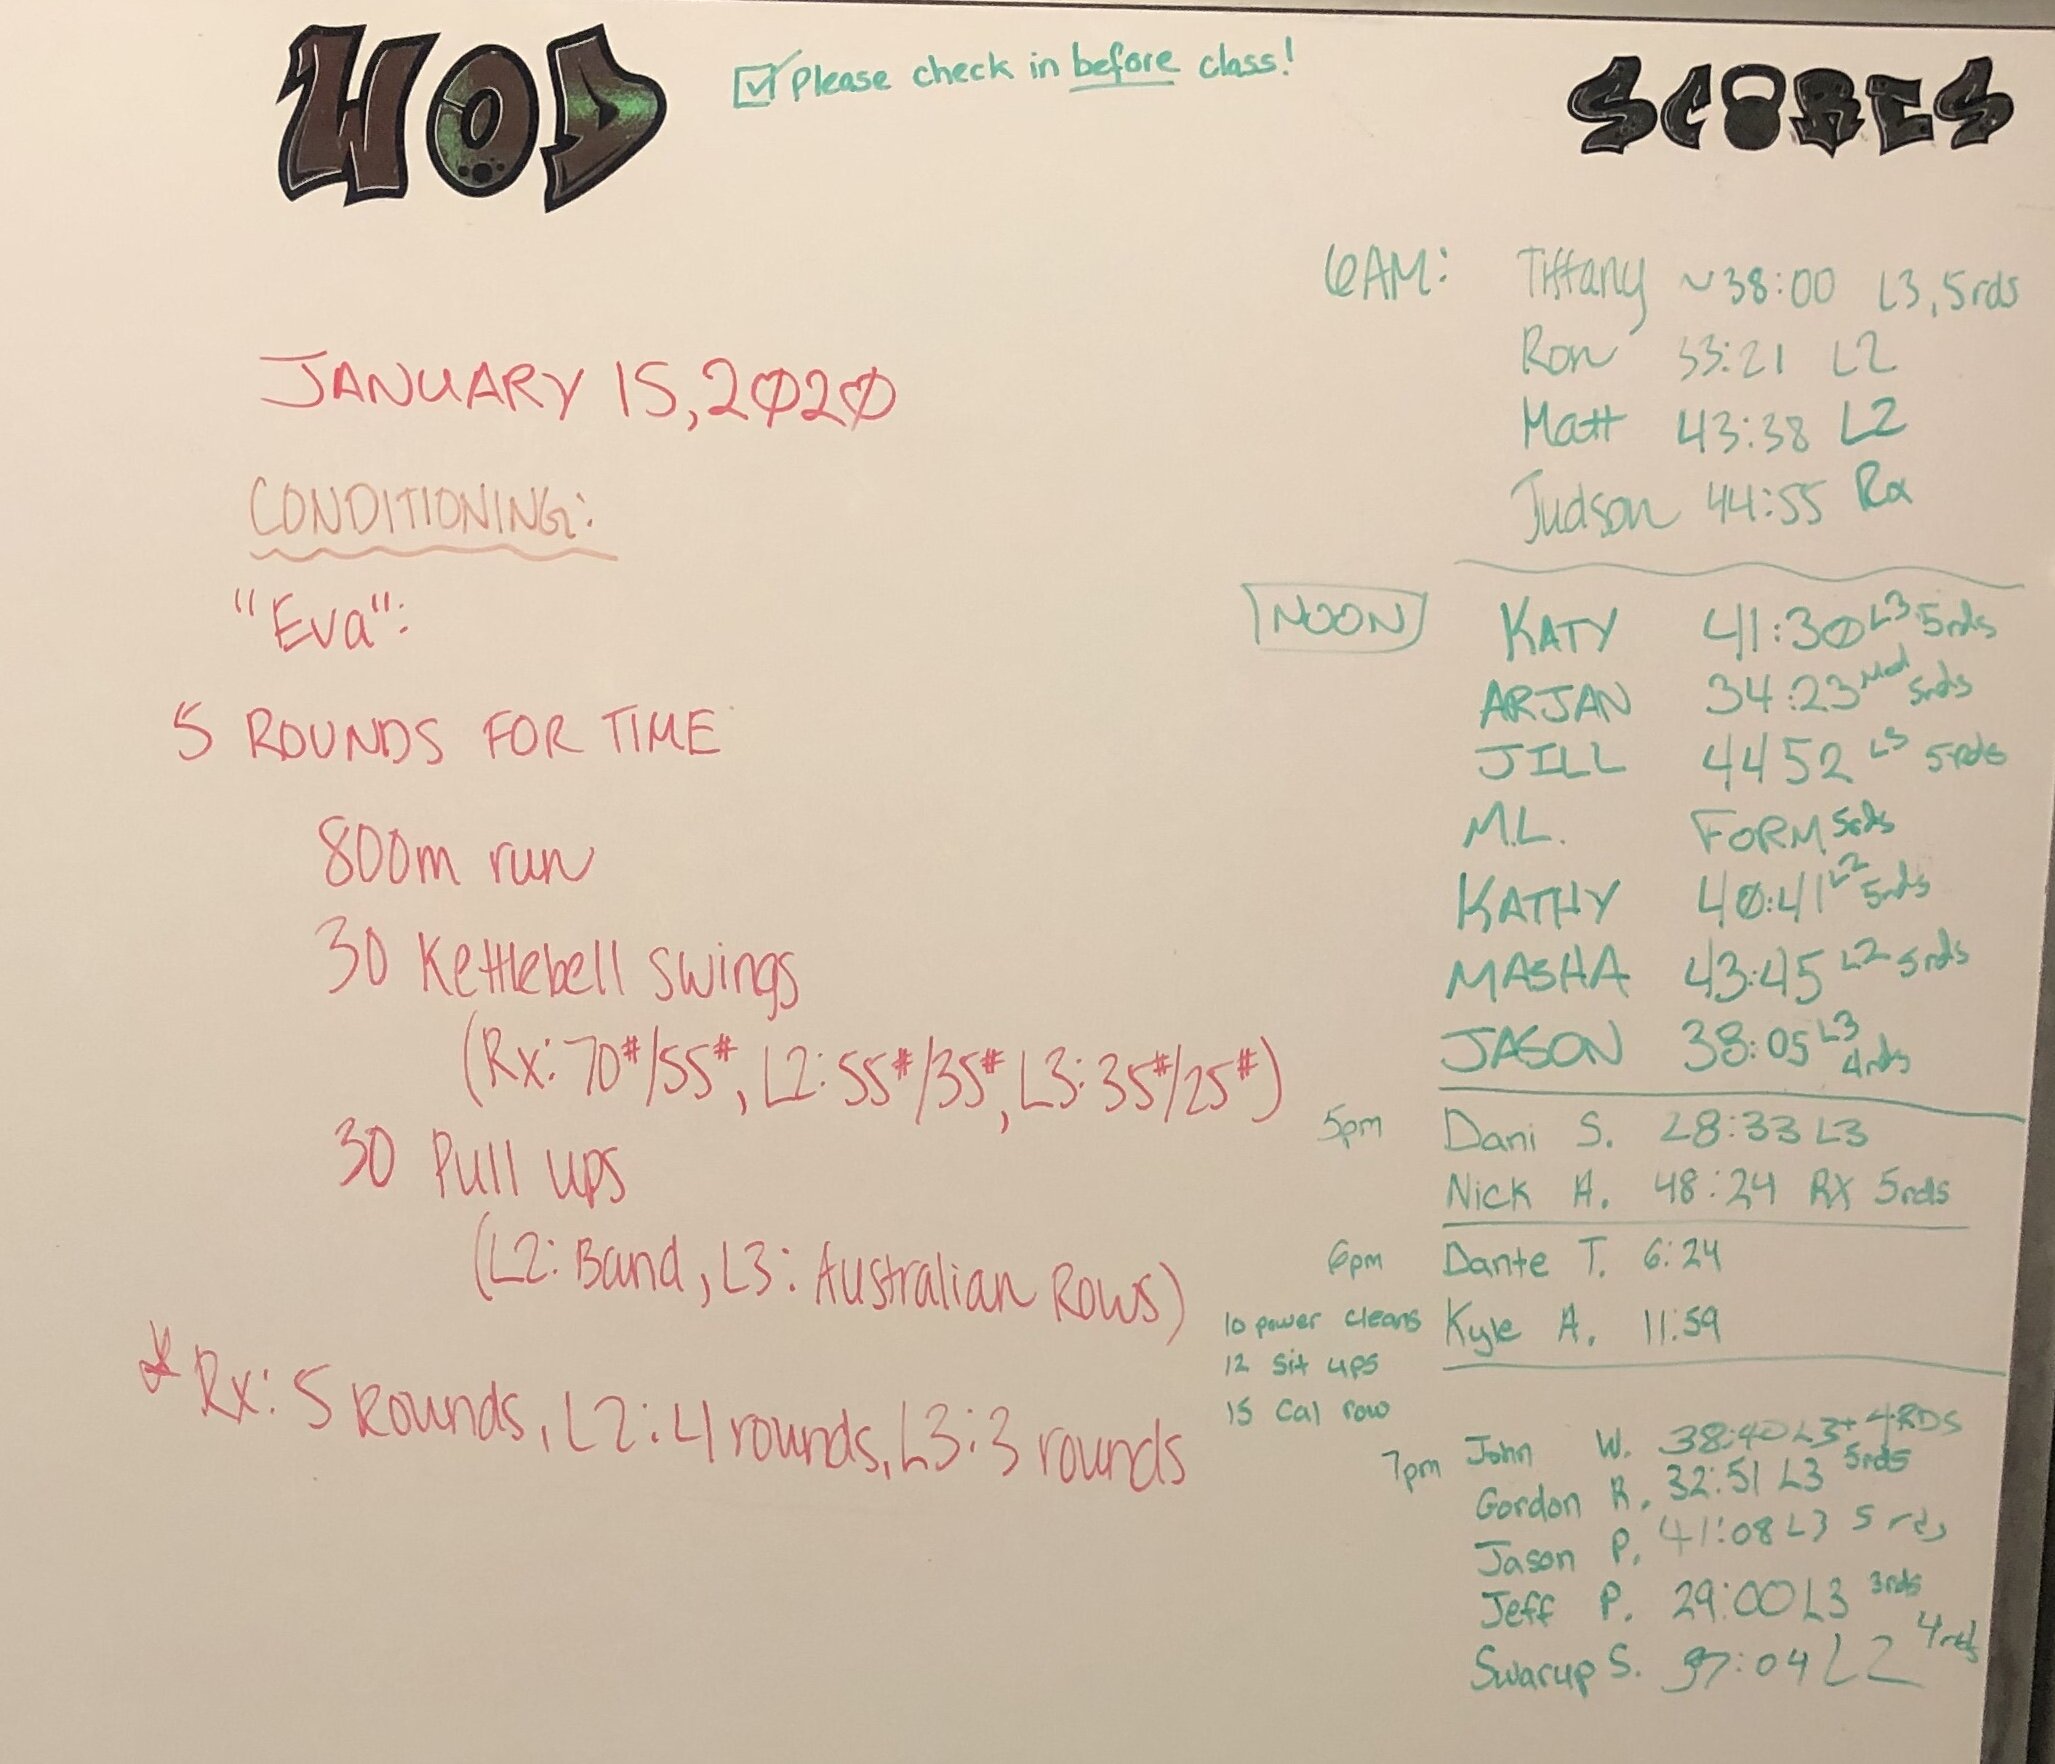 WOD
☑ Please check in before class!
SCORES
JANUARY 15, 2020
CONDITIONING:
"Eva":
5 ROUNDS FOR TIME
800m run
30 Kettlebell swings
(Rx: 70#/55#, L2: 55#/35#, L3: 35#/25#)
30 Pull ups
(L2: Band, L3: Australian Rows)
* Rx: 5 Rounds, L2: 4 rounds, L3: 3 rounds
6AM: Tiffany ~38:00 L3, 5rds
Ron 33:21 L2
Matt 43:38 L2
Judson 44:55 Rx
NOON KATY 41:30 L3 5rds
ARJAN 34:23 Mod 5rds
JILL 4452 L3 5rds
M.L. FORM 5rds
KATHY 40:41 L2 5rds
MASHA 43:45 L2 5rds
JASON 38:05 L3 4rds
5pm Dani S. 28:33 L3
Nick A. 48:24 RX 5rds
6pm Dante T. 6:24
10 power cleans Kyle A. 11:59
12 sit ups
15 Cal row
7pm John W. 38:40 L3+ 4RDS
Gordon R. 32:51 L3 5rds
Jason P. 41:08 L3 5rds
Jeff P. 29:00 L3 3rds
Swarup S. 37:04 L2 4rds